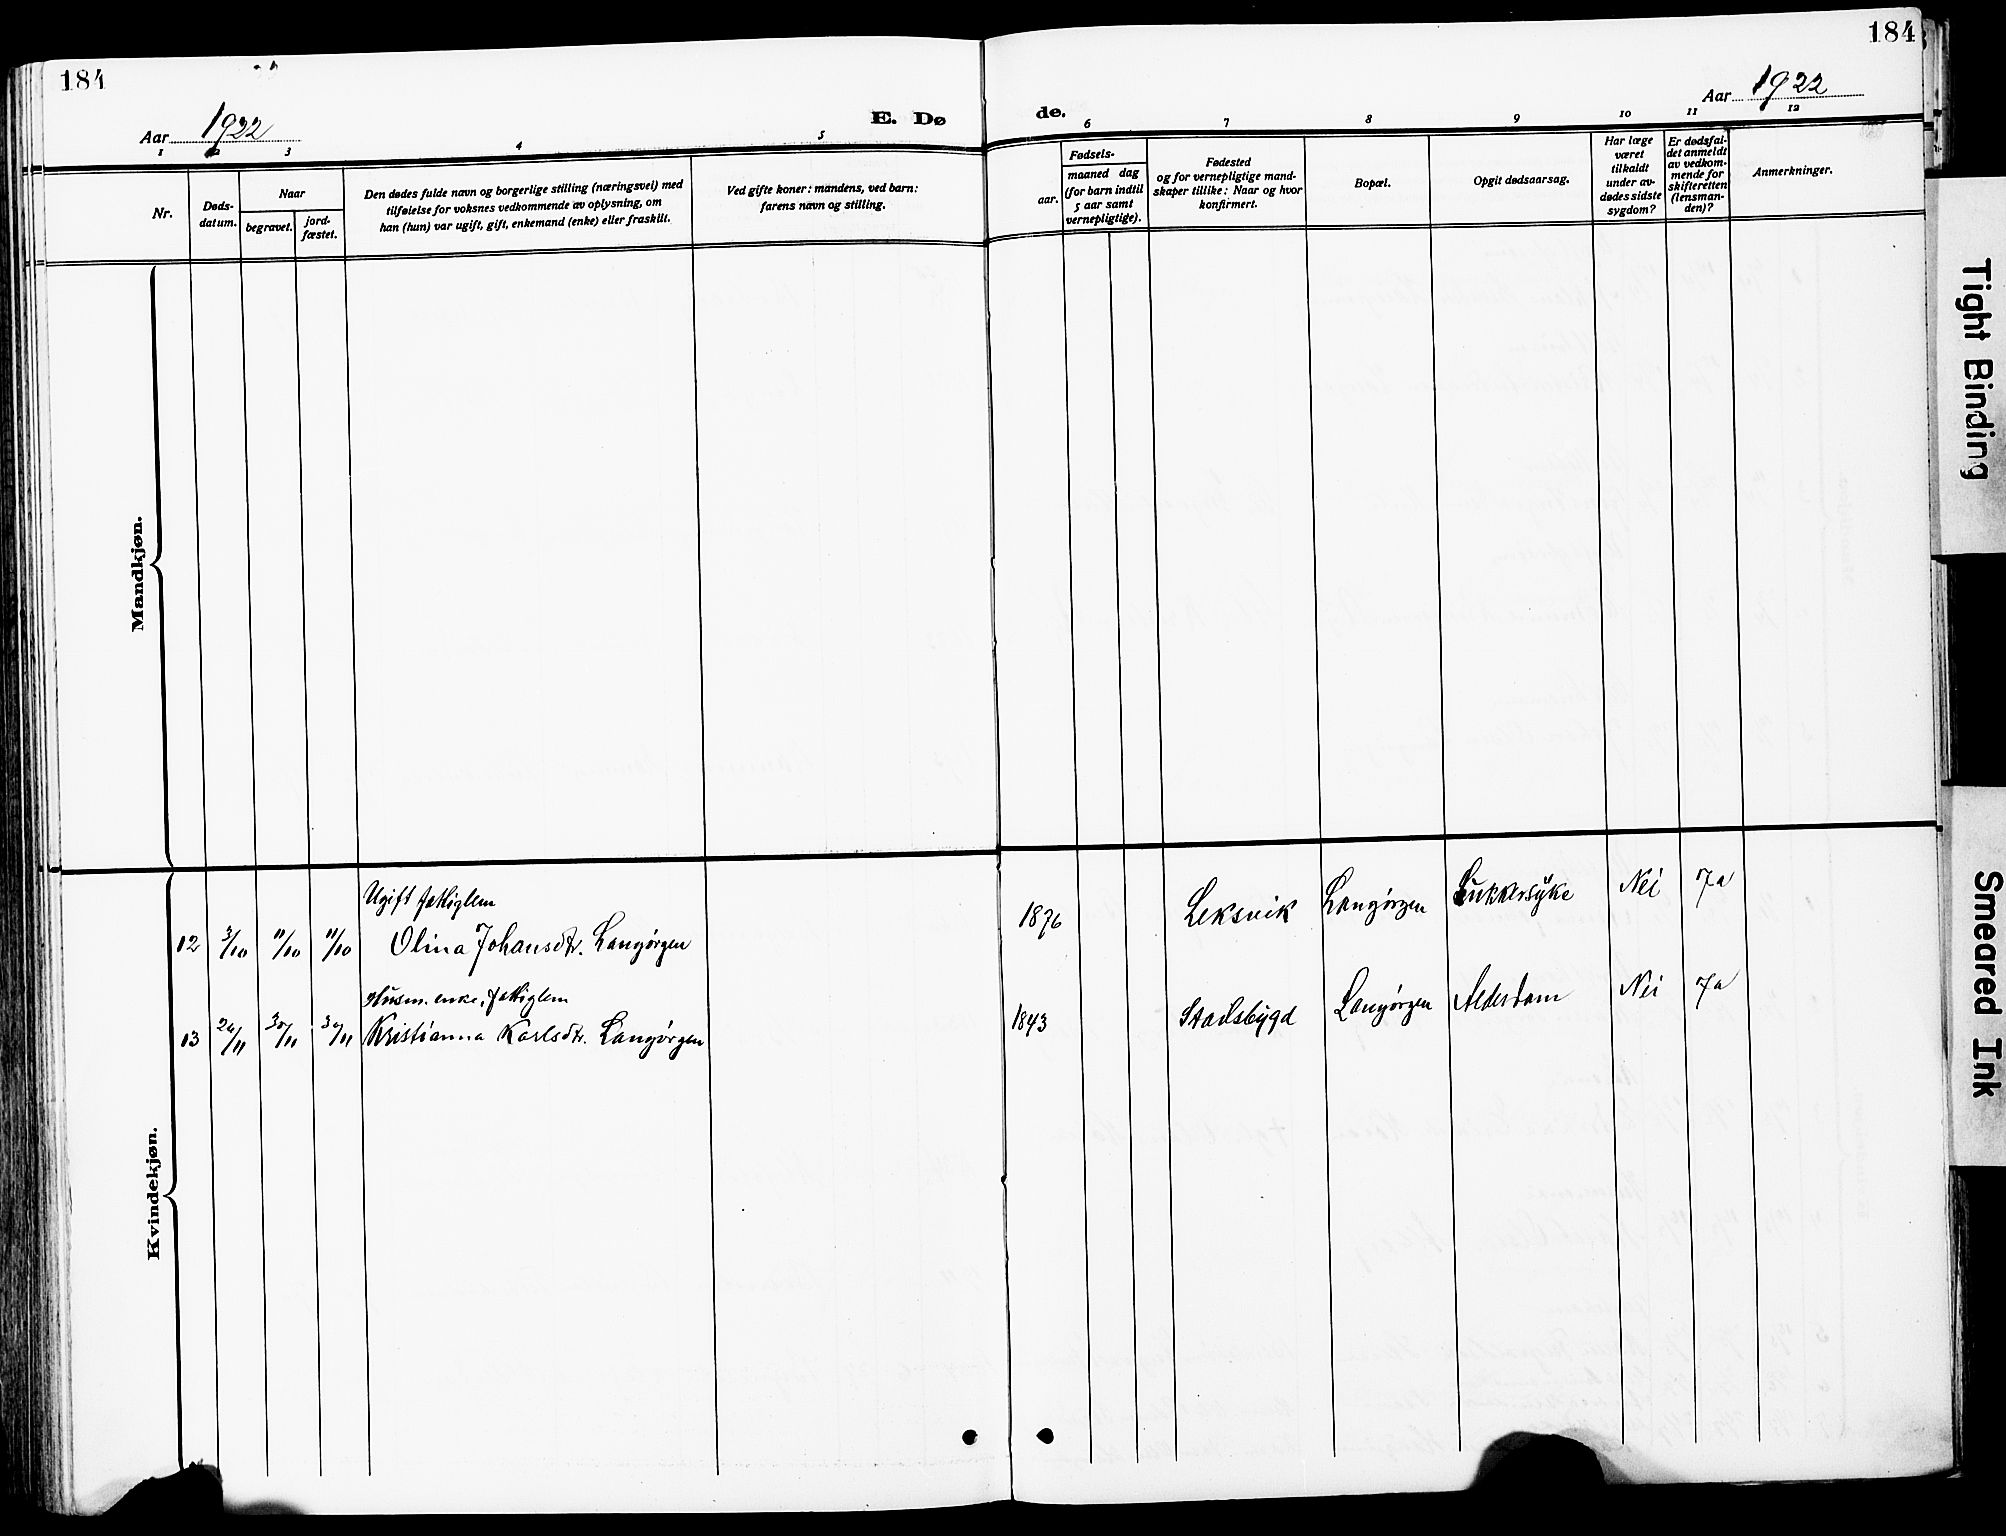 184
184
Aar 1922
E. Dø
de.
Aar 1922
1
2
3
4
5
6
7
8
9
10
11
12
Nr.
Døds-
datum.
Naar
begravet.
jord-
fæstet.
Den dødes fulde navn og borgerlige stilling (næringsvei) med
tilføielse for voksnes vedkommende av oplysning, om
han (hun) var ugift, gift, enkemand (enke) eller fraskilt.
Ved gifte koner: mandens, ved barn:
farens navn og stilling.
Fødsels-
aar.
maaned dag
(for barn indtil
5 aar samt
vernepligtige).
Fødested
og for vernepligtige mand-
skaper tillike: Naar og hvor
konfirmert.
Bopæl.
Opgit dødsaarsag.
Har læge
været
tilkaldt
under av-
dødes sidste
sygdom?
Er dødsfal-
det anmeldt
av vedkom-
mende for
skifteretten
(lensman-
den)?
Anmerkninger.
Mandkjøn.
Kvindekjøn.
Ugift fattiglem
12 3/10 11/10 11/10 Olina Johansdtr. Langørgen 1876 Leksvik Langørgen Sukkersyke Nei Ja
Husm. enke, fattiglem
13 24/11 30/11 30/11 Kristianna Karlsdtr. Langørgen 1843 Stadsbygd Langørgen Alderdom Nei Ja
Tight Binding
Smeared Ink